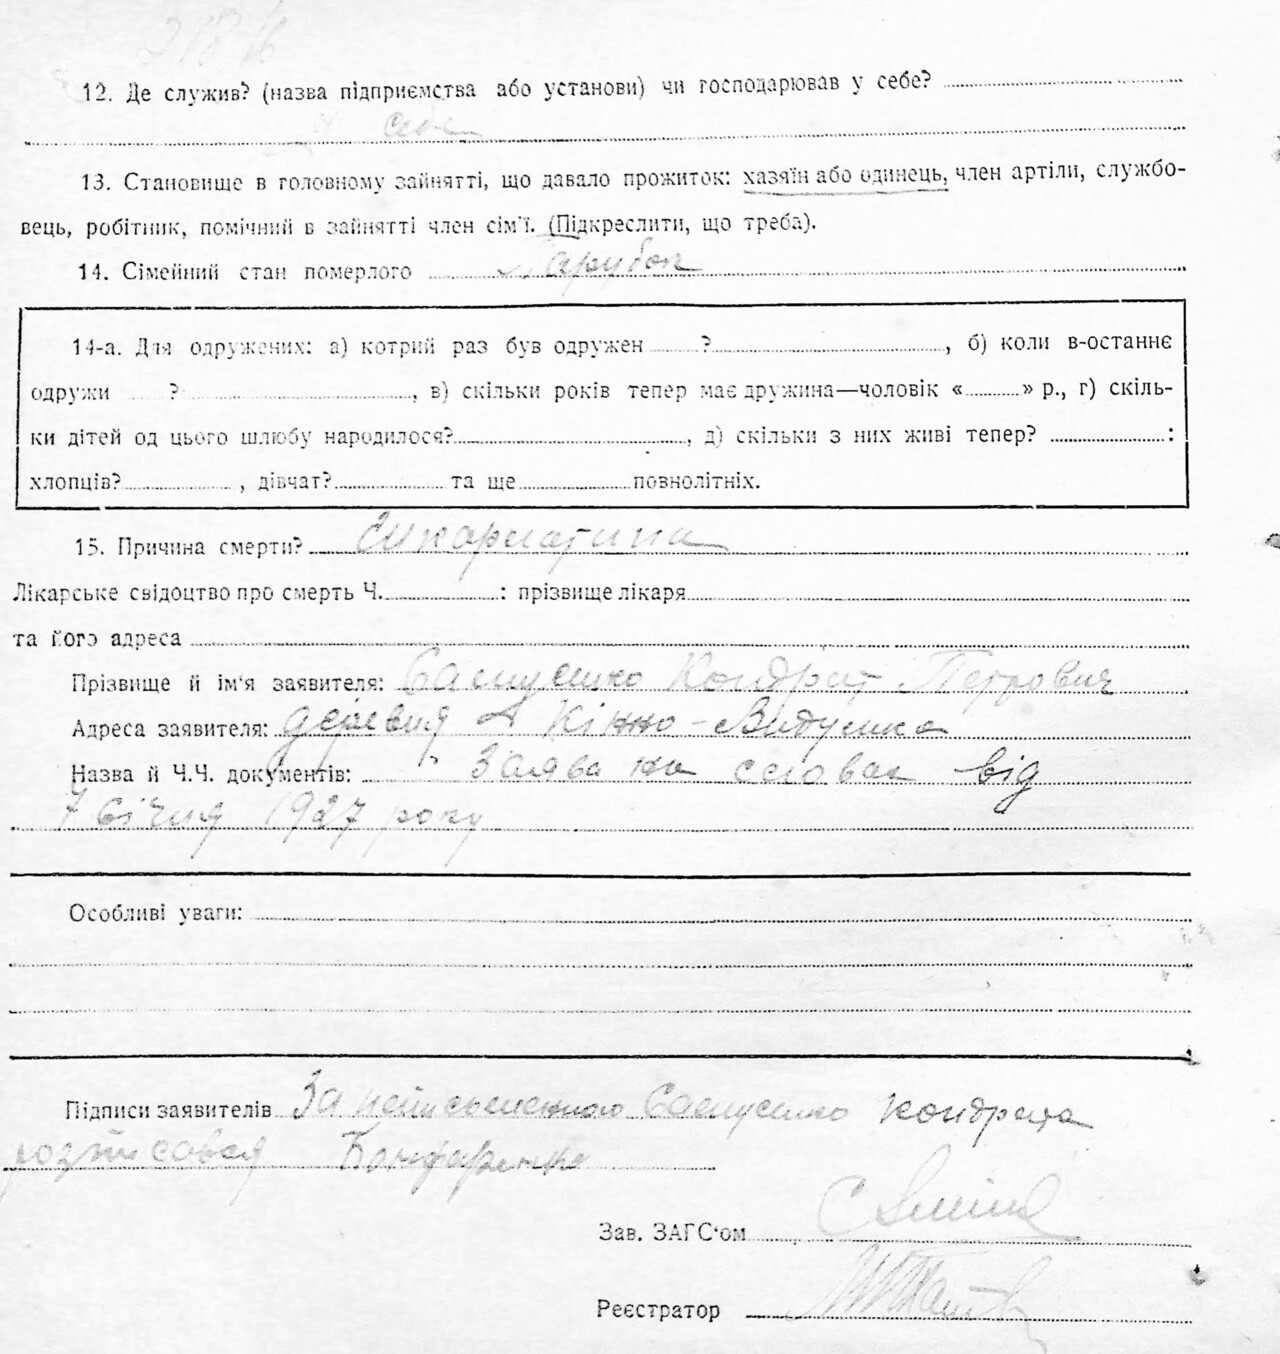 12. Де служив? (назва підприємства або установи) чи господарював у себе?
себе
13. Становище в головному зайнятті, що давало прожиток: хазяїн або одинець, член артіли, службо-
вець, робітник, помічний в зайнятті член сім'ї. (Підкреслити, що треба).
14. Сімейний стан померлого Парубок
14-а. Для одружених: а) котрий раз був одружен ?, б) коли в-останнє
одружи ?, в) скільки років тепер має дружина—чоловік « » р., г) скіль-
ки дітей од цього шлюбу народилося?, д) скільки з них живі тепер? :
хлопців? , дівчат? та ще повнолітніх.
15. Причина смерти? Шкарлатина
Лікарське свідоцтво про смерть Ч. : прізвище лікаря
та його адреса
Прізвище й ім'я заявителя: Кондрат Петрович
Адреса заявителя: деревня
Назва й Ч.Ч. документів: Заява на словах від
7 Січня 1927 року
Особливі уваги:
Підписи заявителів За неписьменного Кондрата
розписався Бондаренко
Зав. ЗАГС'ом
Реєстратор